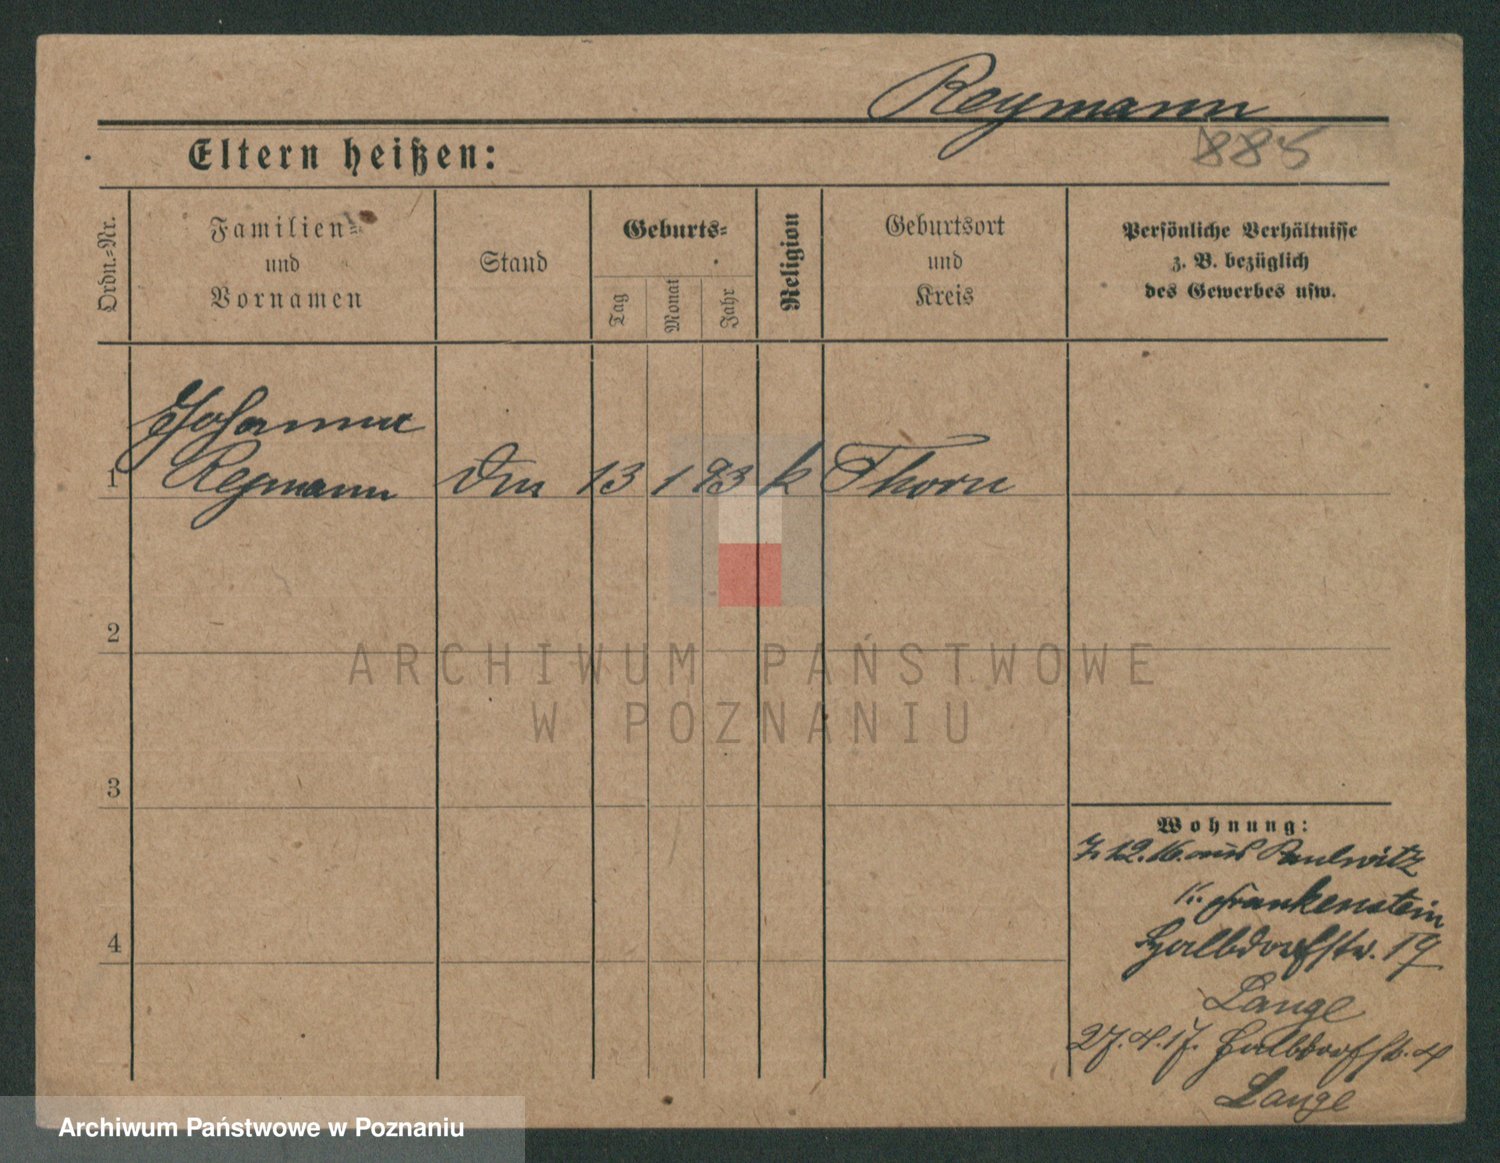 Reymann
885
Eltern heißen:
Ordn.-Nr.
Familien-
und
Vornamen
Stand
Geburts-
Tag
Monat
Jahr
Religion
Geburtsort
und
Kreis
Persönliche Verhältnisse
z. B. bezüglich
des Gewerbes usw.
Johanna
1 Reymann 13 1 93 k Thorn
2
ARCHIWUM PAŃSTWOWE
W POZNANIU
3
Wohnung:
7.12.16. aus Paulwitz
K. Frankenstein
Halbdorfstr. 19
Lange
4
27.4.17. Halbdorfstr. 4
Lange
Archiwum Państwowe w Poznaniu